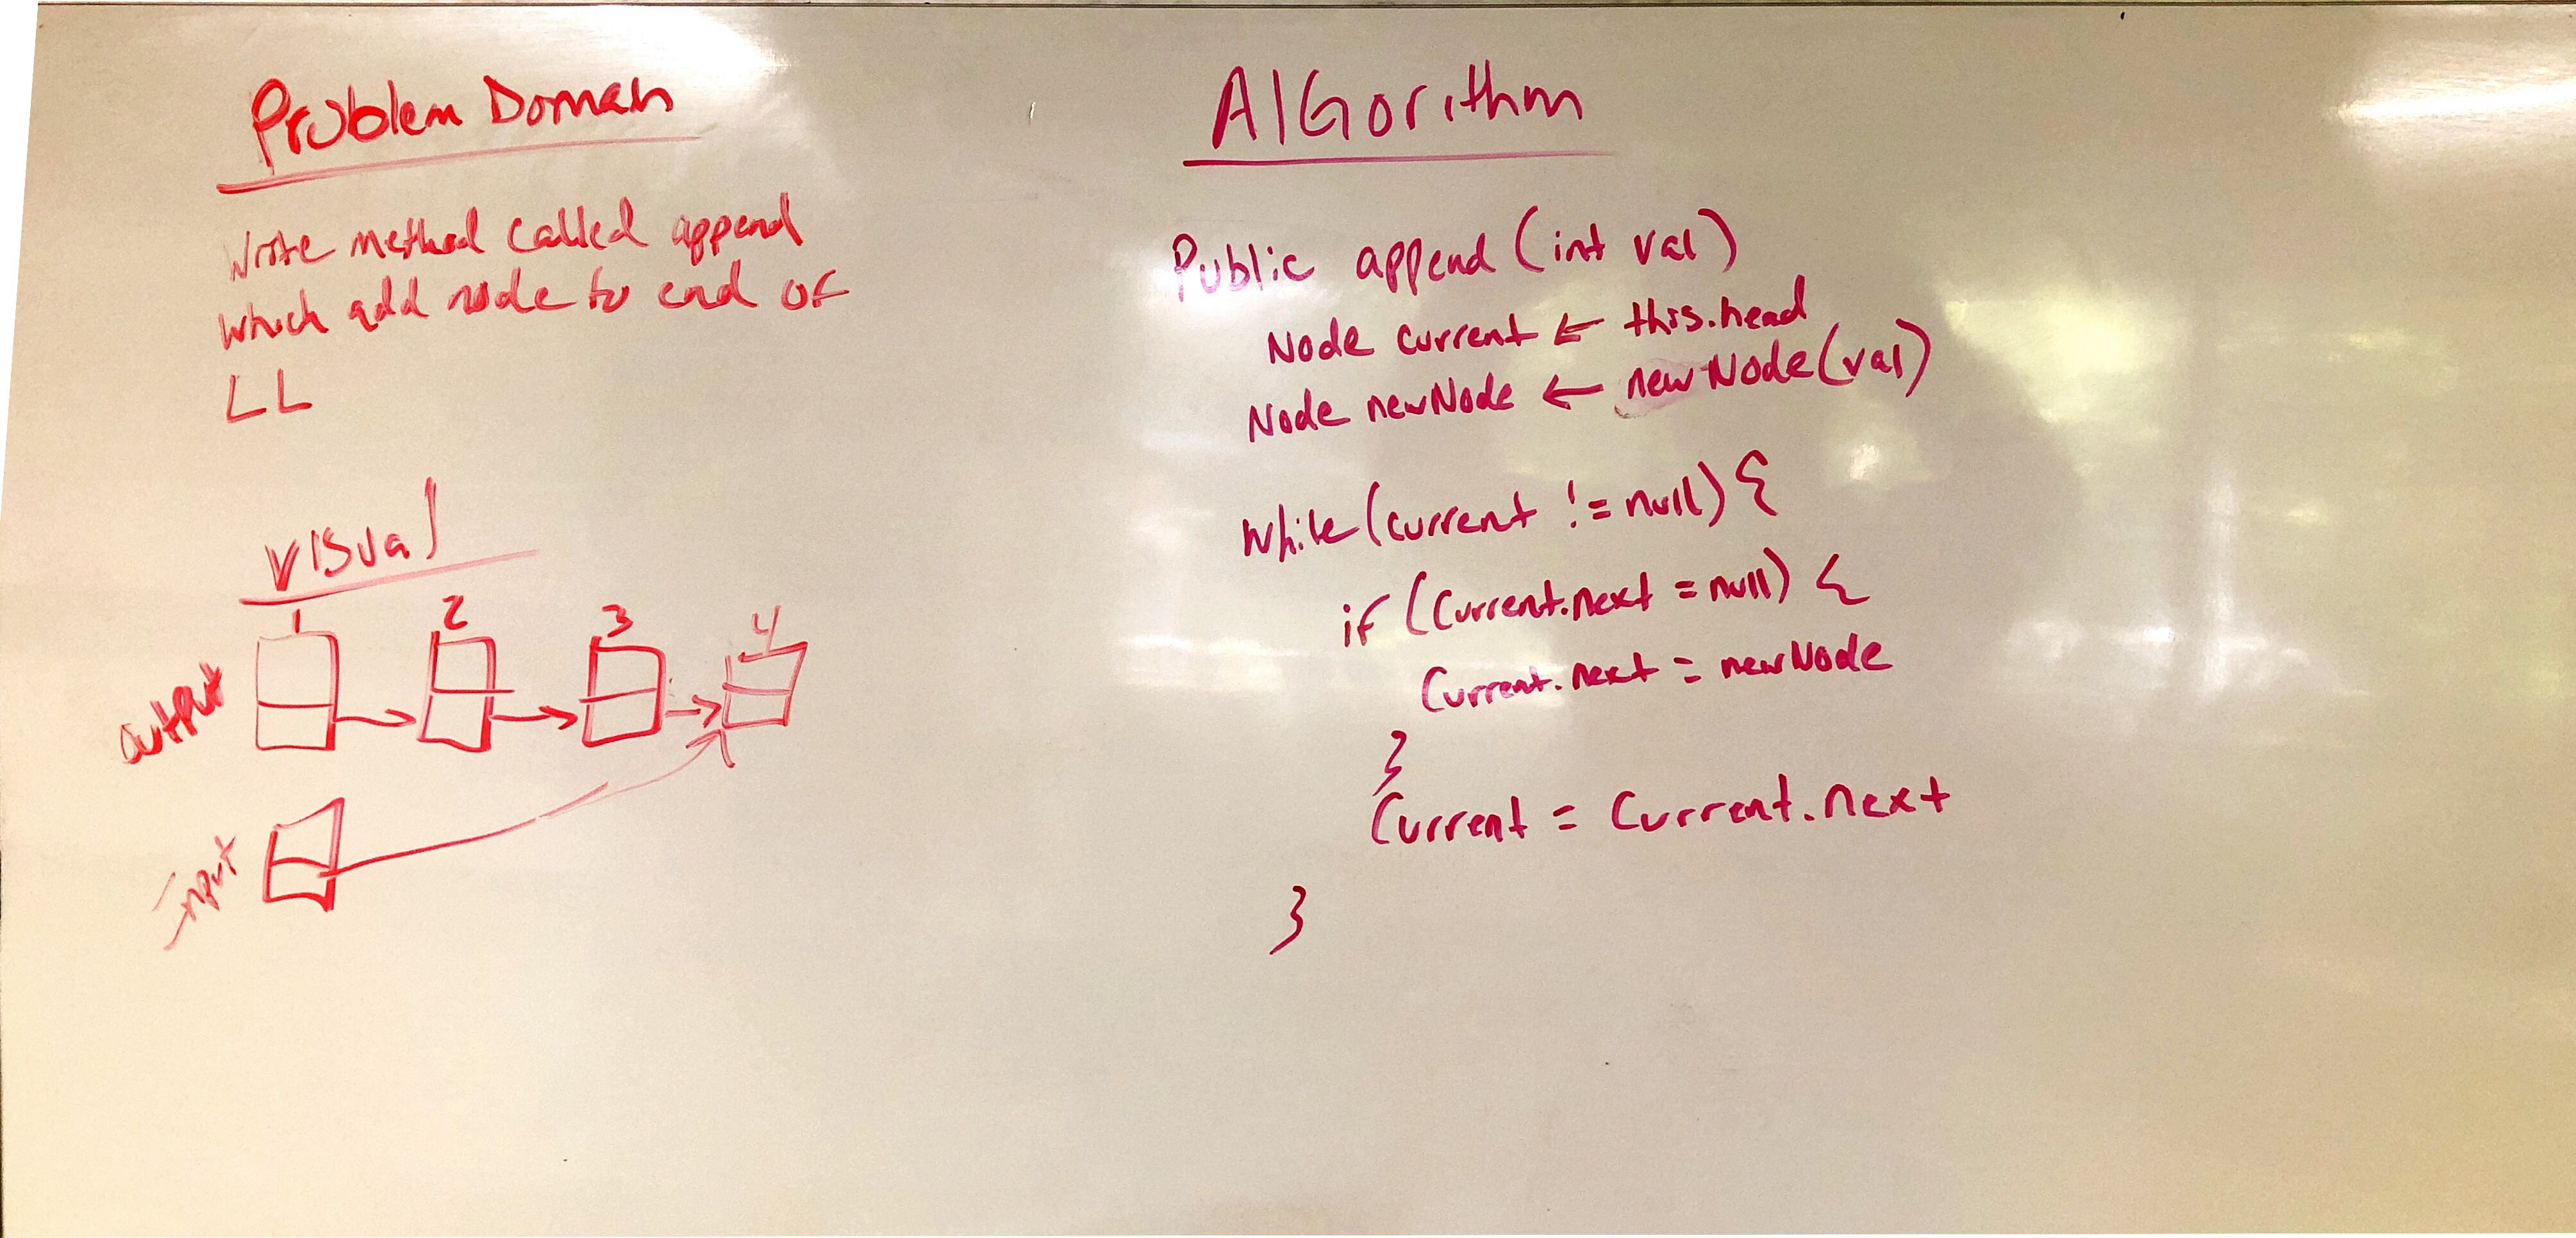 Problem Domain
Write method called append
which add node to end of
LL
Visual
1 2 3 4
output
input
AlGorithm
Public append (int val)
Node current ← this.head
Node newNode ← new Node(val)
while (current != null) {
if (Current.next = null) {
Current.next = newNode
}
Current = Current.next
}